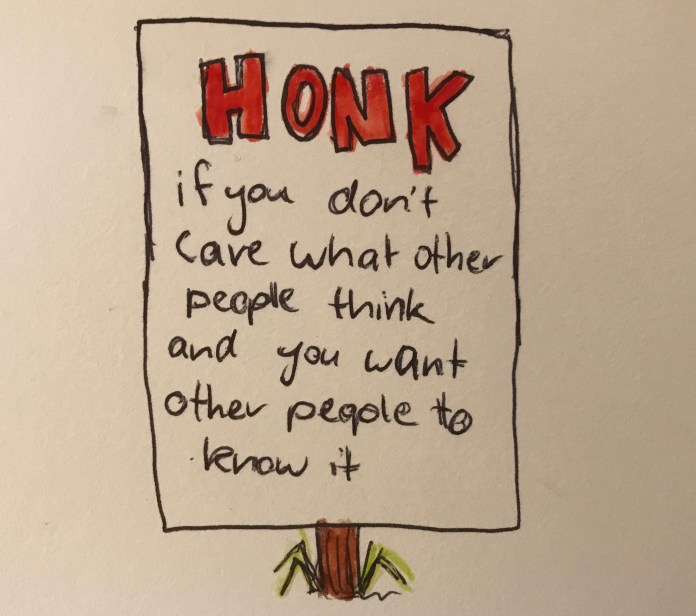 HONK
if you don't
care what other
people think
and you want
other people to
know it